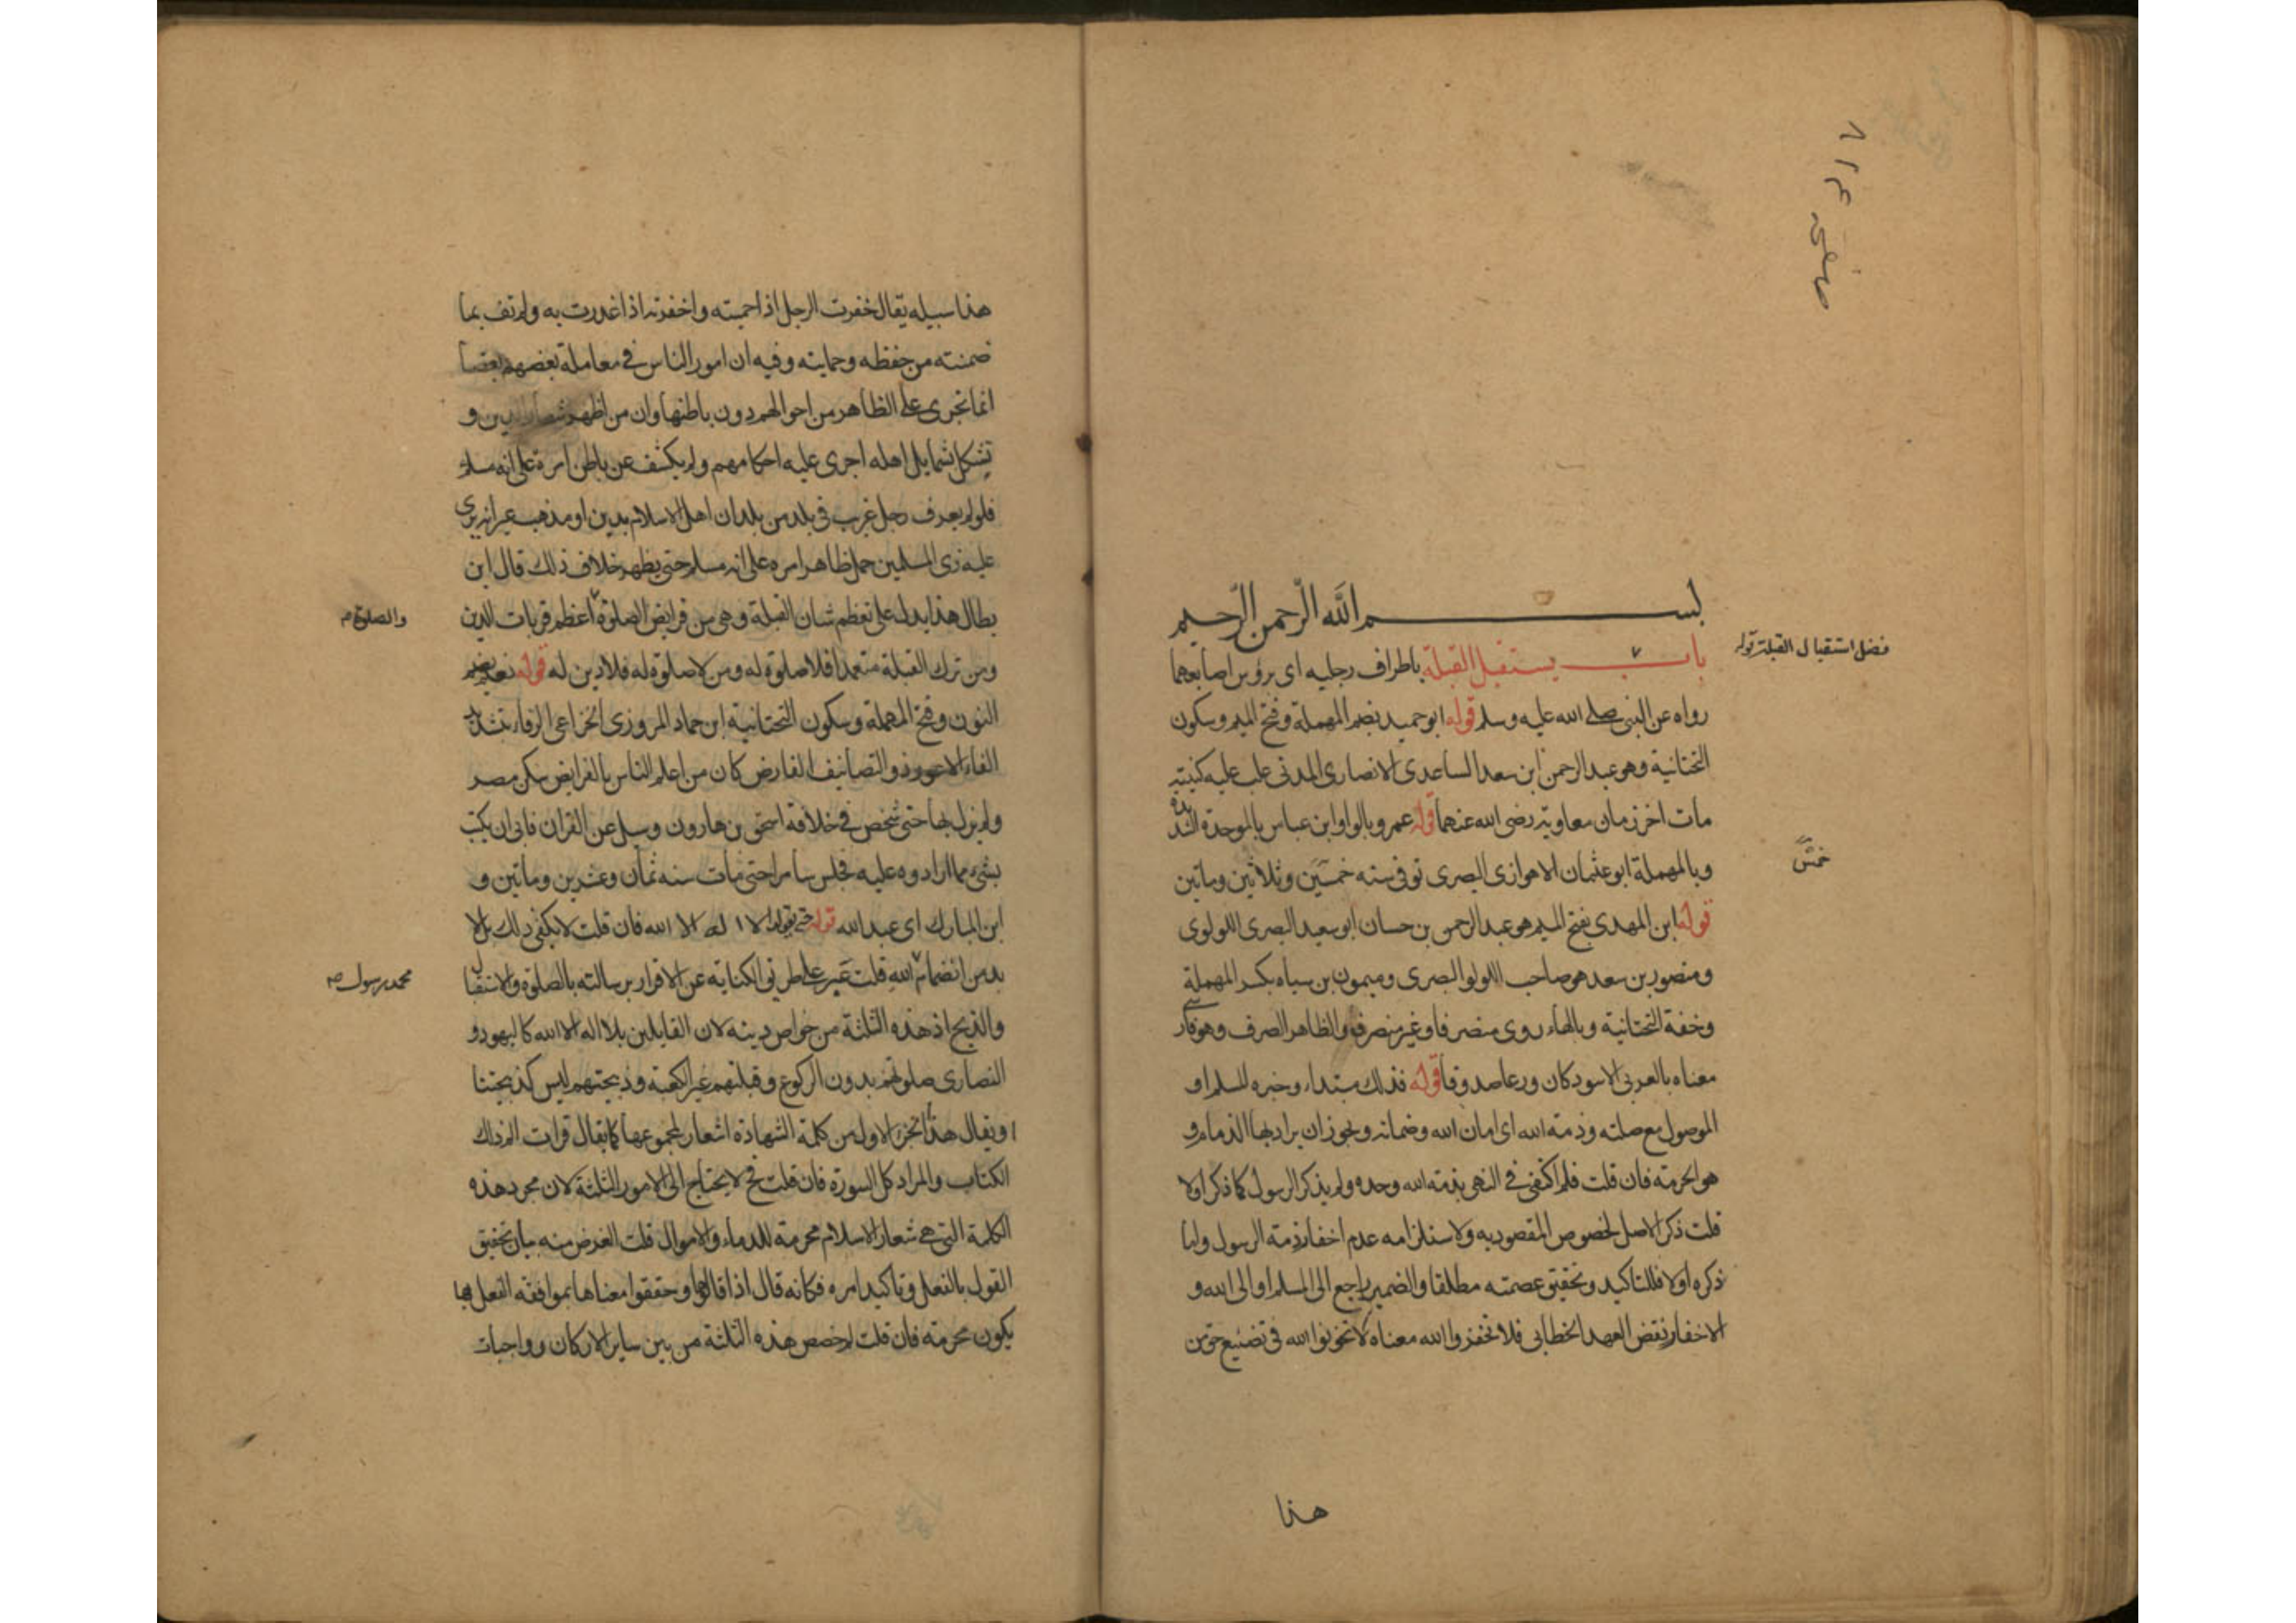 بسم الله الرحمن الرحيم
فضل استقبال القبلة قوله
باب يستقبل القبلة باطراف رجليه اى برؤس اصابعهما
رواه عن النبى صلى الله عليه وسلم قوله ابو حميد بضم المهملة وفتح الميم وسكون
التحتانية وهو عبد الرحمن ابن سعد الساعدى الانصارى المدنى غلب عليه كنيته
مات اخر زمان معاوية رضى الله عنهما قوله عمرو بالواو ابن عباس بالموحدة
وبالمهملة ابو عثمان الاهوازى البصرى توفى سنه خمس وثلاثين وماتين
خمس
قوله ابن المهدى بفتح الميم هو عبد الرحمن بن حسان ابو سعيد البصرى اللولوى
ومنصور بن سعد هو صاحب اللولو البصرى وميمون بن سياه بكسر المهملة
وخفة التحتانية وبالهاء روى منصرفا وغير منصرف والظاهر الصرف وهو فارسى
معناه بالعربى الاسود كان ورعا صدوقا قوله فذلك مبتداء وخبره المسلم او
الموصول مع صلته وذمة الله اى امان الله وضمانه ويجوز ان يراد بها الذمام و
هو الحرمة فان قلت فلم اكتفى فى النهى بذمة الله وحده ولم يذكر الرسول كما ذكر اولا
قلت ذكر الاصل لخصوص المقصود به ولاستلزامه عدم اخفار ذمة الرسول واما
ذكره اولا فللتاكيد وتحقيق عصمته مطلقا والضمير راجع الى المسلم او الى الله و
الاخفار نقض العهد الخطابى فلا تخفروا الله معناه لا تخونوا الله فى تضييع حق من
هذا
هذا سبيله يقال خفرت الرجل اذا حميته واخفرته اذا غدرت به ولم تف بما
ضمنته من حفظه وحمايته وفيه ان امور الناس فى معاملة بعضهم بعضا
انما تجرى على الظاهر من احوالهم دون باطنها وان من اظهر شعار الدين و
تشكل شمايل اهله اجرى عليه احكامهم ولم يكشف عن باطن امره على انه مسلم
فلو لم يعرف رجل غريب فى بلد من بلدان اهل الاسلام بدين او مذهب غير انه يرى
عليه زى المسلمين حمل ظاهر امره على انه مسلم حتى يظهر خلاف ذلك قال ابن
بطال هذا يدل على تعظم شان القبلة وهى من فرايض الصلوة اعظم قربات الدين
والصلوة
ومن ترك القبلة متعمدا فلا صلوة له ومن لا صلوة له فلا دين له قوله نعيم بضم
النون وفتح المهملة وسكون التحتانية ابن حماد المروزى الخزاعى الرفاء بتشديد
الفاء الاعور ذو التصانيف الفارض كان من اعلم الناس بالفرايض سكن مصر
ولم يزل بها حتى شخص فى خلافة اسحق بن هارون وسيل عن القران فابى ان يجيب
بشئ مما ارادوه عليه فحبس سامرا حتى مات سنه ثمان وعشرين وماتين و
ابن المبارك اى عبد الله قوله حتى يقولوا لا اله الا الله فان قلت لا يكفى ذلك بل لا
بد من انضمام الله قلت عبر على طريق الكناية عن الاقرار برسالته بالصلوة والاستقبال
محمد رسول
والذبح اذ هذه الثلثة من خواص دينه لان القايلين بلا اله الا الله كاليهود و
النصارى صلوتهم بدون الركوع وقبلتهم غير الكعبة وذبيحتهم ليس كذبيحتنا
او يقال هذا الجزء الاول من كلمة الشهادة اشعار لمجموعها كما يقال قرات الم ذلك
الكتاب والمراد كل السورة فان قلت فح لا يحتاج الى الامور الثلثة لان مجرد هذه
الكلمة التى هى شعار الاسلام محرمة للدماء والاموال قلت الغرض منه بيان تحقيق
القول بالفعل وتاكيد امره فكانه قال اذا قالوها وحققوا معناها بموافقة الفعل لها
يكون محرمة فان قلت لم خصص هذه الثلثة من بين ساير الاركان وواجبات